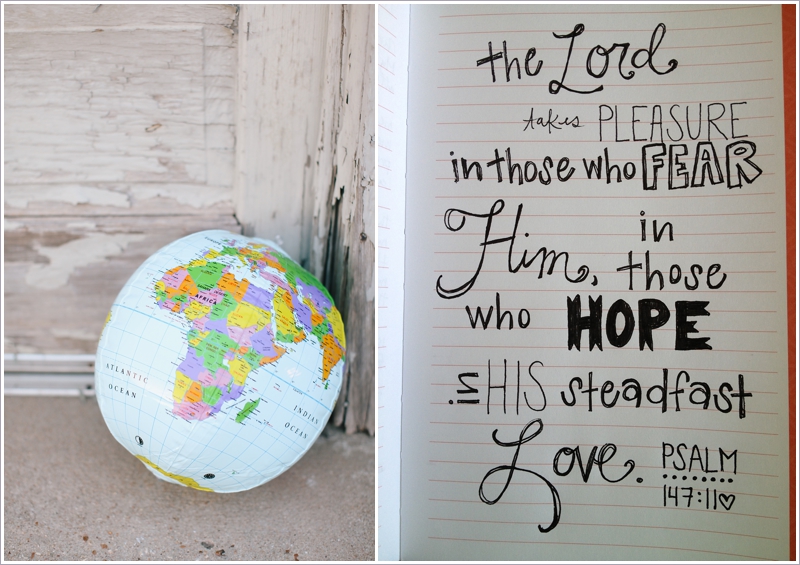 AFRICA
ATLANTIC
OCEAN
INDIAN
OCEAN
the Lord
takes PLEASURE
in those who FEAR
Him, in
those
who HOPE
in HIS steadfast
Love. PSALM
147:11♡